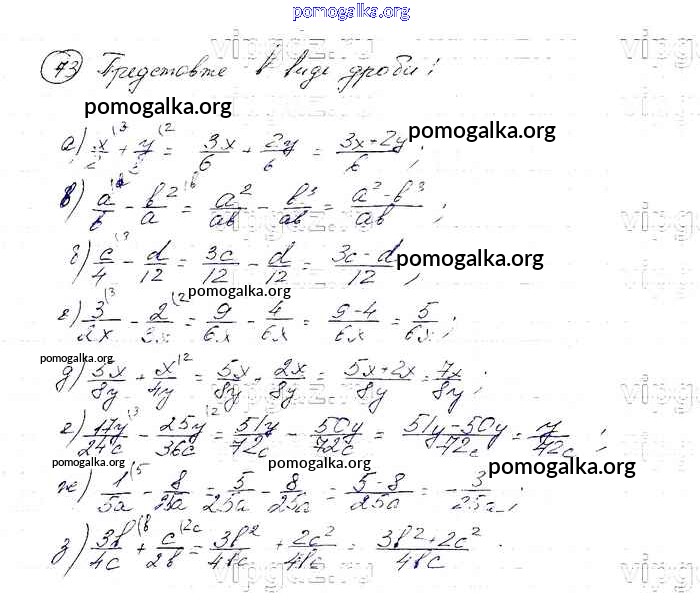 pomogalka.org
73 Представьте в виде дроби:
pomogalka.org
pomogalka.org
а) x/2 + y/3 = 3x/6 + 2y/6 = 3x+2y/6;
в) a/b - b²/a = a²/ab - b³/ab = a²-b³/ab;
б) c/4 - d/12 = 3c/12 - d/12 = 3c-d/12;
pomogalka.org
pomogalka.org
г) 3/2x - 2/3x = 9/6x - 4/6x = 9-4/6x = 5/6x;
pomogalka.org
д) 5x/8y + x/4y = 5x/8y + 2x/8y = 5x+2x/8y = 7x/8y;
е) 17y/24c - 25y/36c = 51y/72c - 50y/72c = 51y-50y/72c = y/72c;
pomogalka.org
pomogalka.org
pomogalka.org
ж) 1/5a - 8/25a = 5/25a - 8/25a = 5-8/25a = -3/25a;
з) 3b/4c + c/2b = 3b²/4bc + 2c²/4bc = 3b²+2c²/4bc.